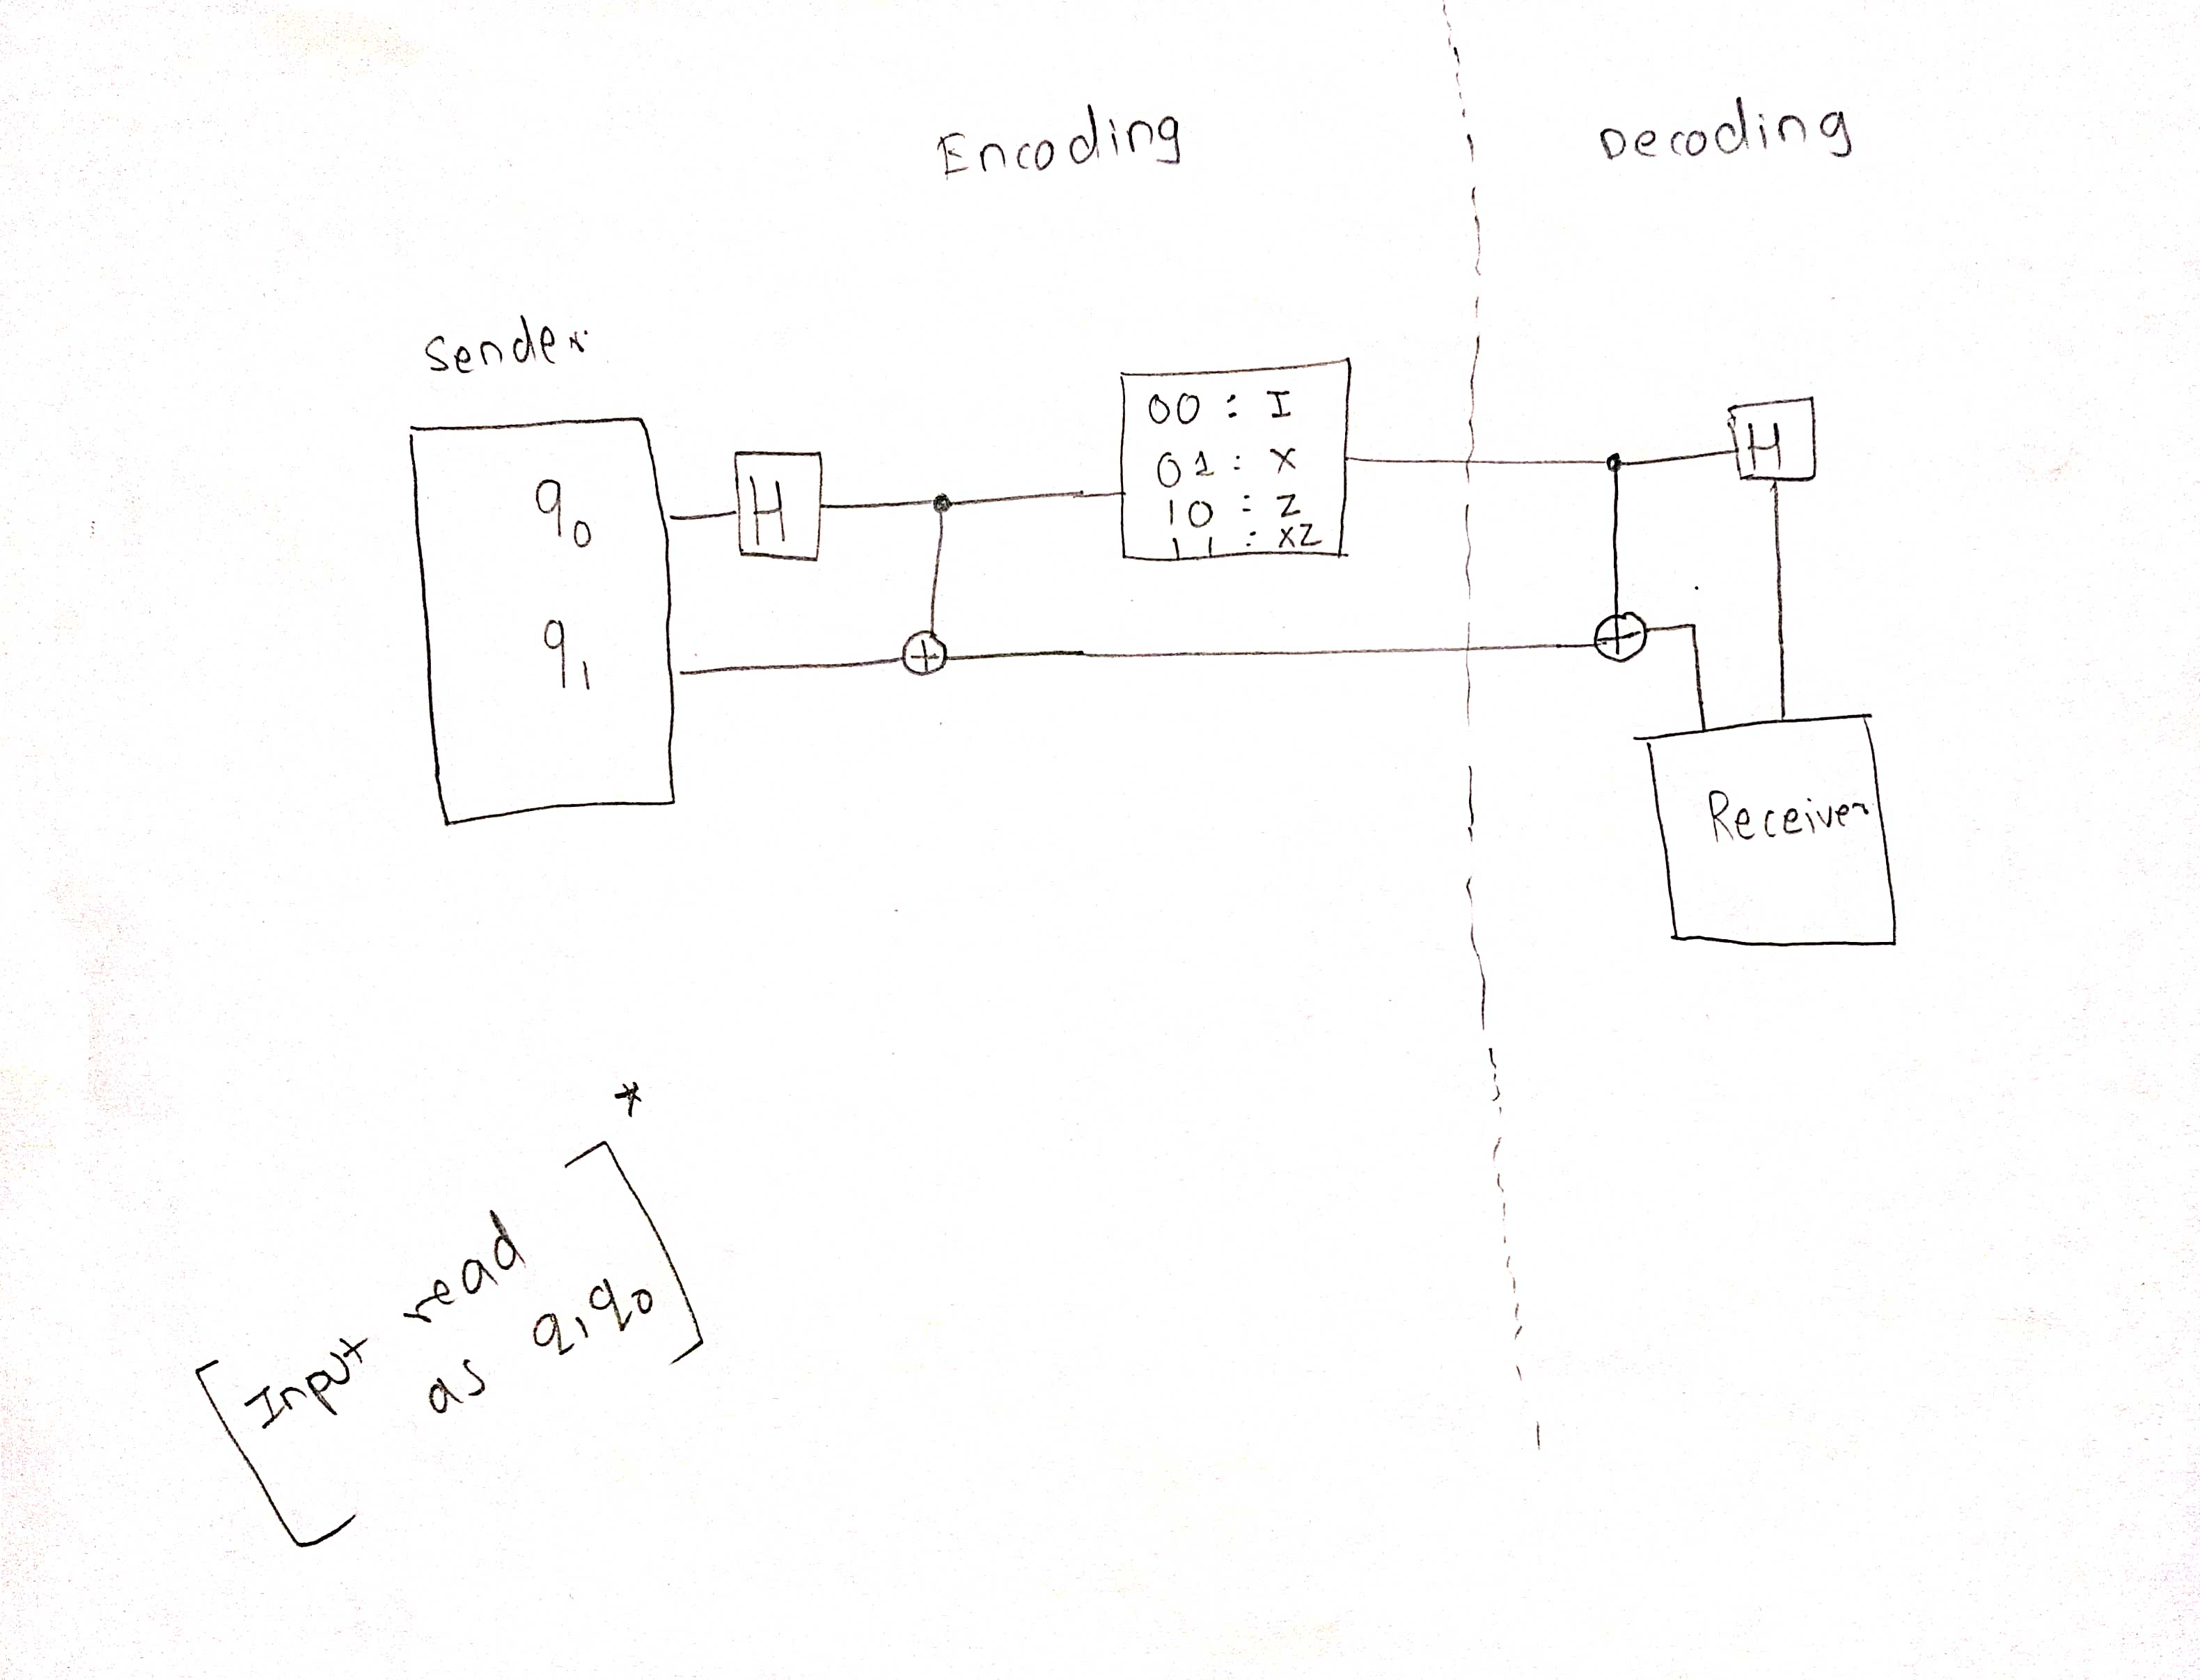 Encoding
Decoding
Sender
q0
q1
H
00 : I
01 : X
10 : Z
11 : XZ
H
Receiver
*
[Input read
as q1q0]